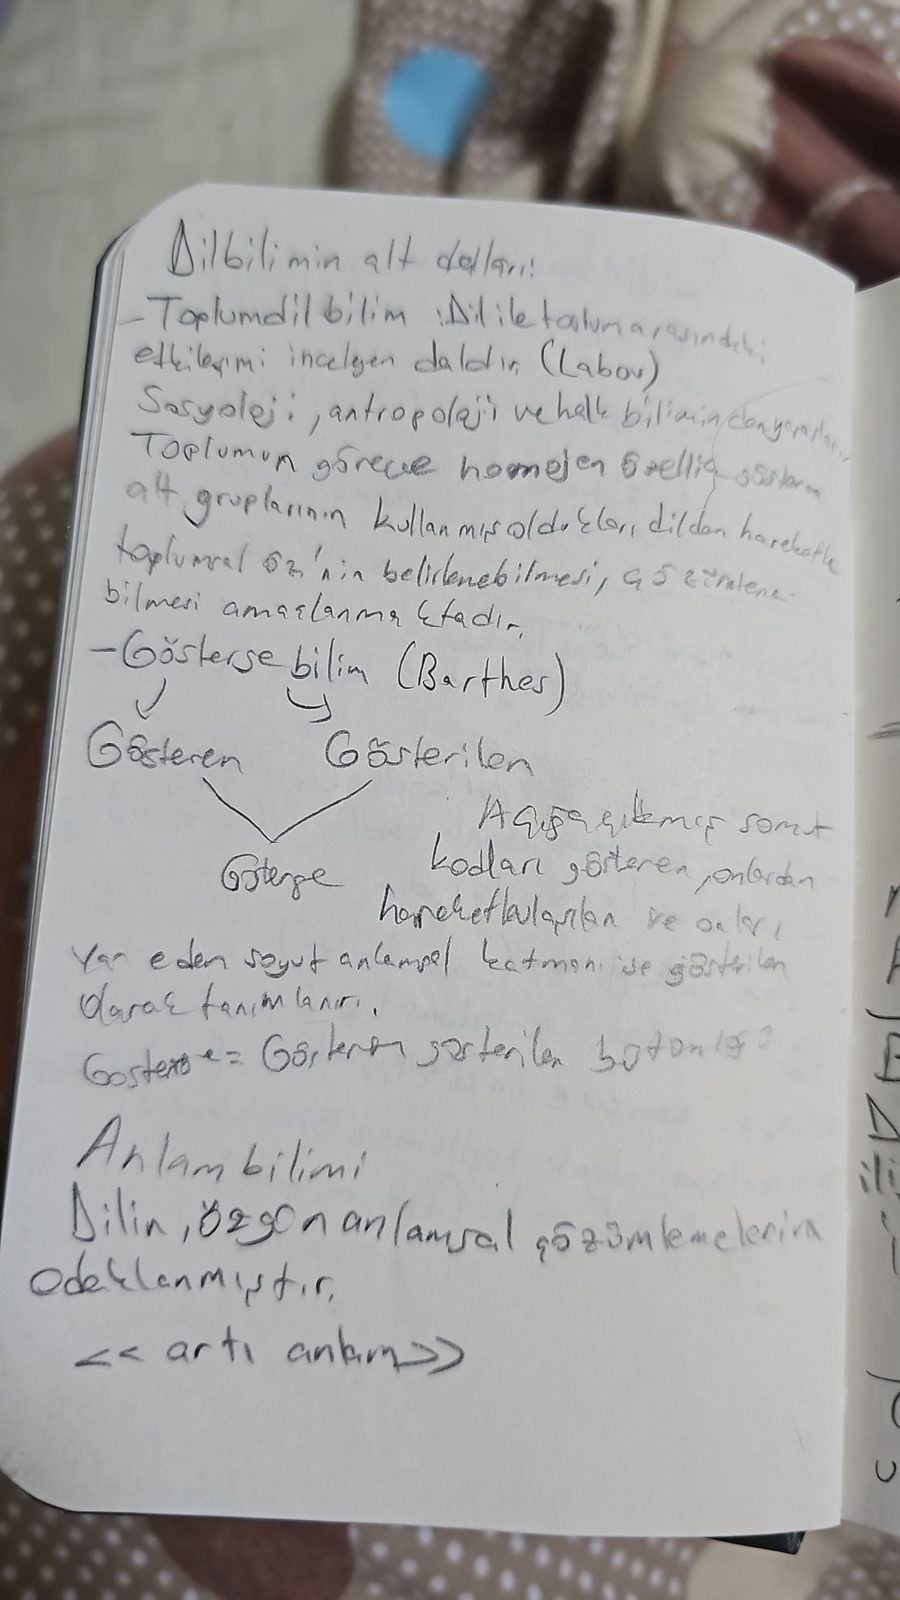 Dilbilimin alt dalları:
- Toplumdil bilim : Dil ile toplum arasındaki
etkileşimi inceleyen daldır. (Labov)
Sosyoloji, antropoloji ve halk biliminden yararlanır
Toplumun görece homojen özellik gösteren
alt gruplarının kullanmış oldukları dilden hareketle
toplumsal öz'nin belirlenebilmesi, çözümlene-
bilmesi amaçlanmaktadır.
- Gösterge bilim (Barthes)
Gösteren Gösterilen
Gösterge
Açığa çıkmış somut
kodları gösteren, onlardan
hareketle ulaşılan ve onları
var eden soyut anlamsal katmanı ise gösterilen
olarak tanımlanır.
Gösterge = Gösteren gösterilen bütünlüğü
Anlam bilimi
Dilin, özgün anlamsal çözümlemelerine
odaklanmıştır.
<< artı anlam >>